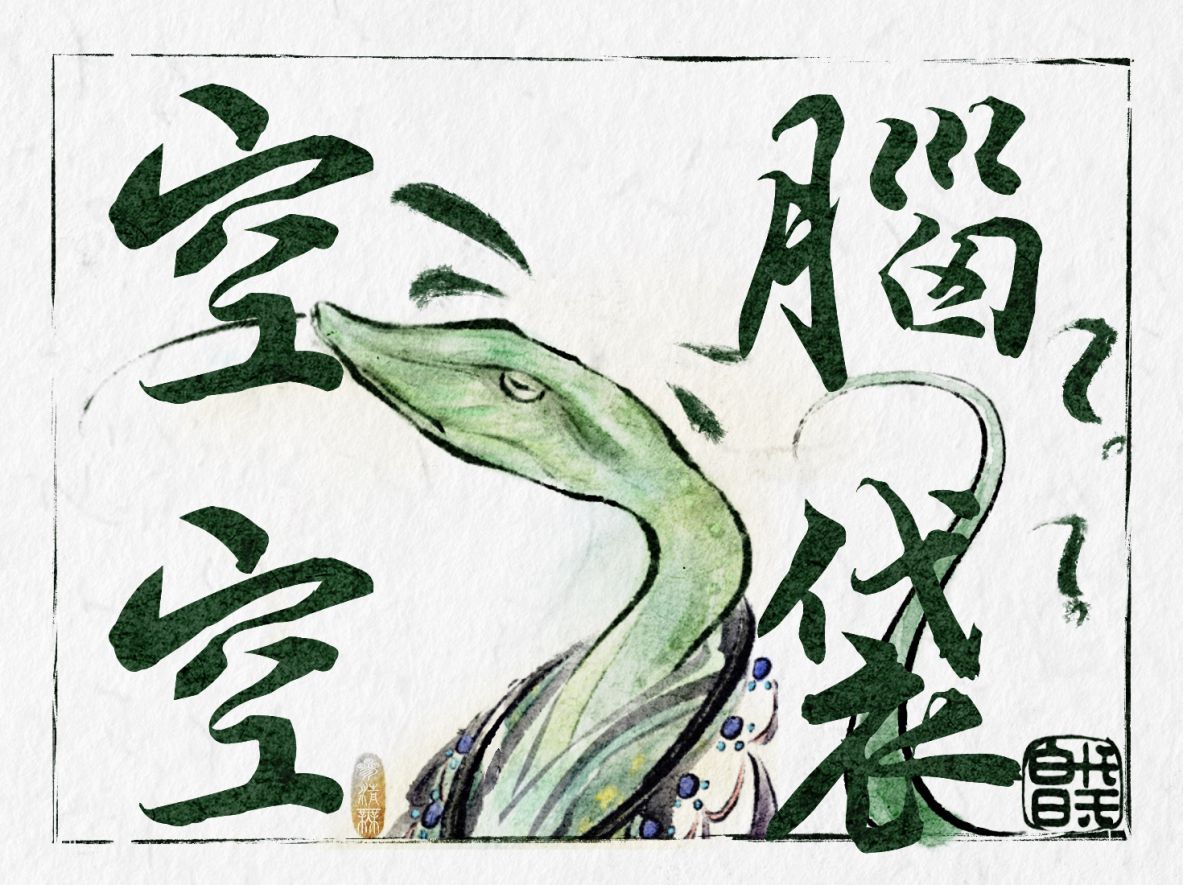 腦袋
空空
？
？